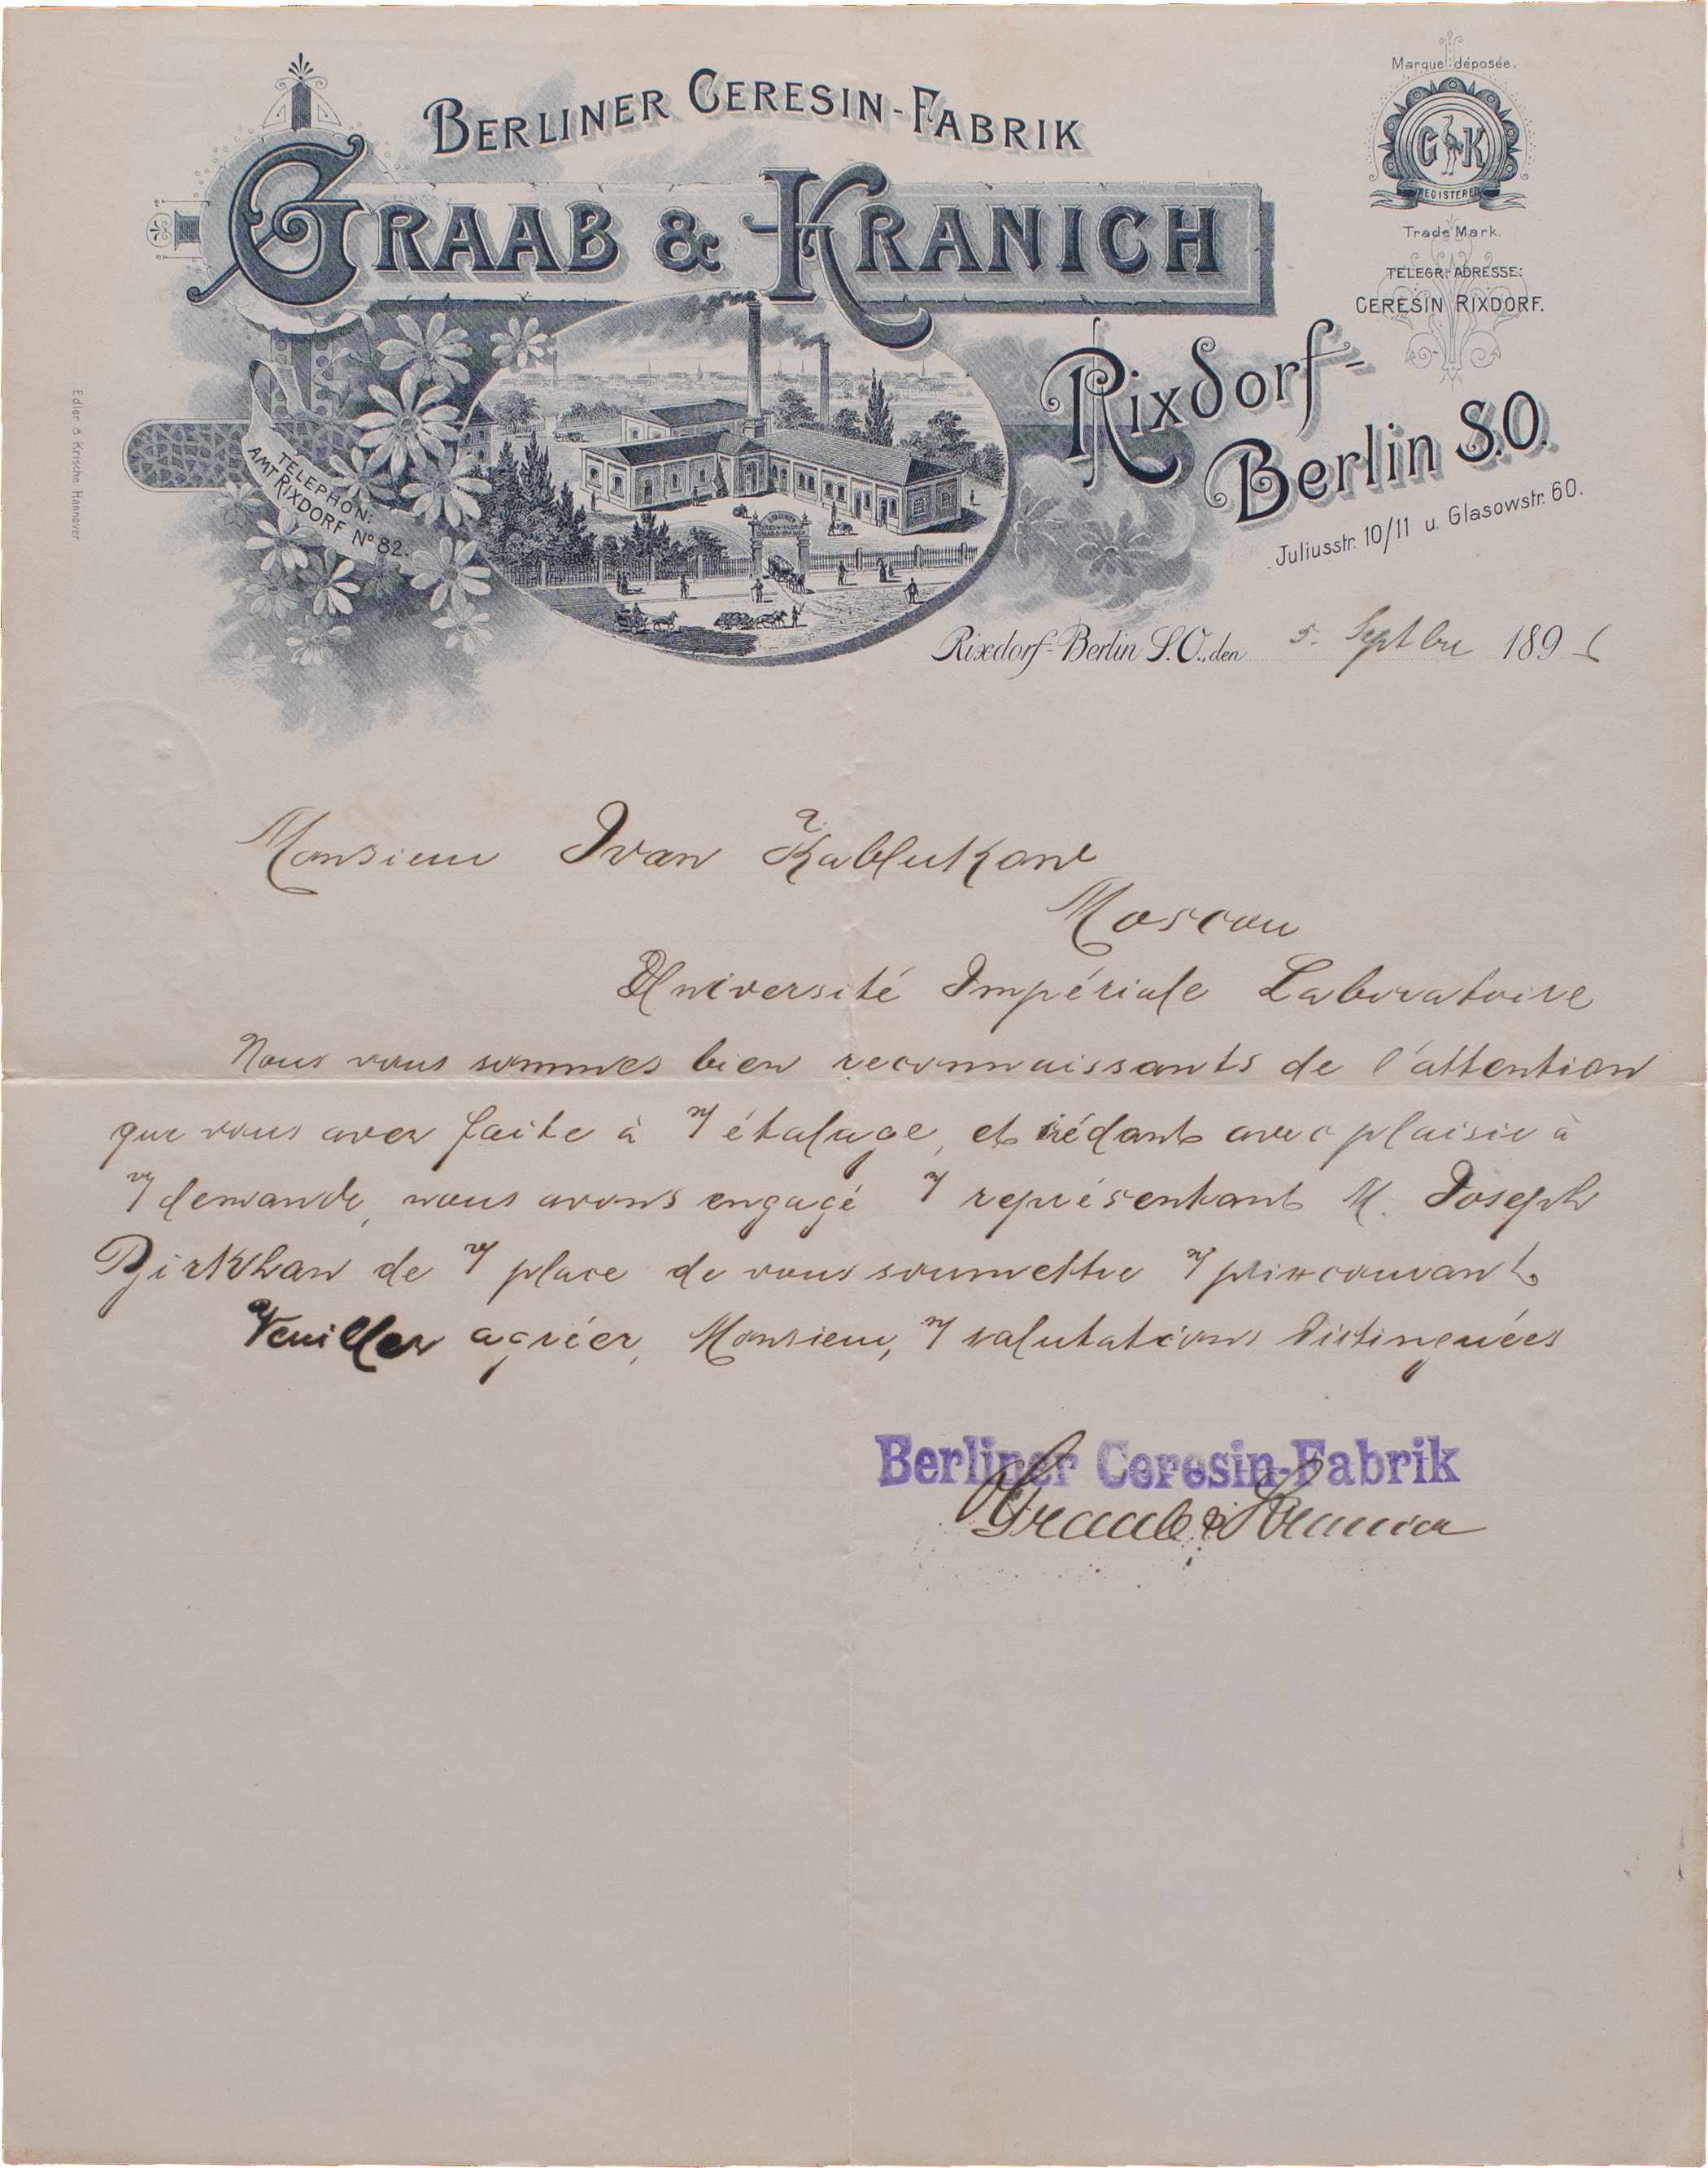 BERLINER CERESIN-FABRIK
GRAAB & KRANICH
Marque déposée.
G K
REGISTERED
Trade Mark.
TELEGR.-ADRESSE:
CERESIN RIXDORF.
Rixdorf-
Berlin S.O.
Juliusstr. 10/11 u. Glasowstr. 60.
TELEPHON:
AMT RIXDORF No 82.
Edler & Krische Hannover
BERLINER
CERESIN-FABRIK
GRAAB & KRANICH
Rixdorf-Berlin S.O., den 5. Septbre 189
Monsieur Ivan Kablukow
Moscou
Université Impériale Laboratoire
Nous vous sommes bien reconnaissants de l'attention
que vous avez faite à n/ étalage, et cédant avec plaisir à
v/ demande, nous avons engagé n/ représentant M. Joseph
de v/ place de vous soumettre n/ prix courant.
Veuillez agréer, Monsieur, n/ salutations distinguées
Berliner Ceresin-Fabrik
Graab & Kranich